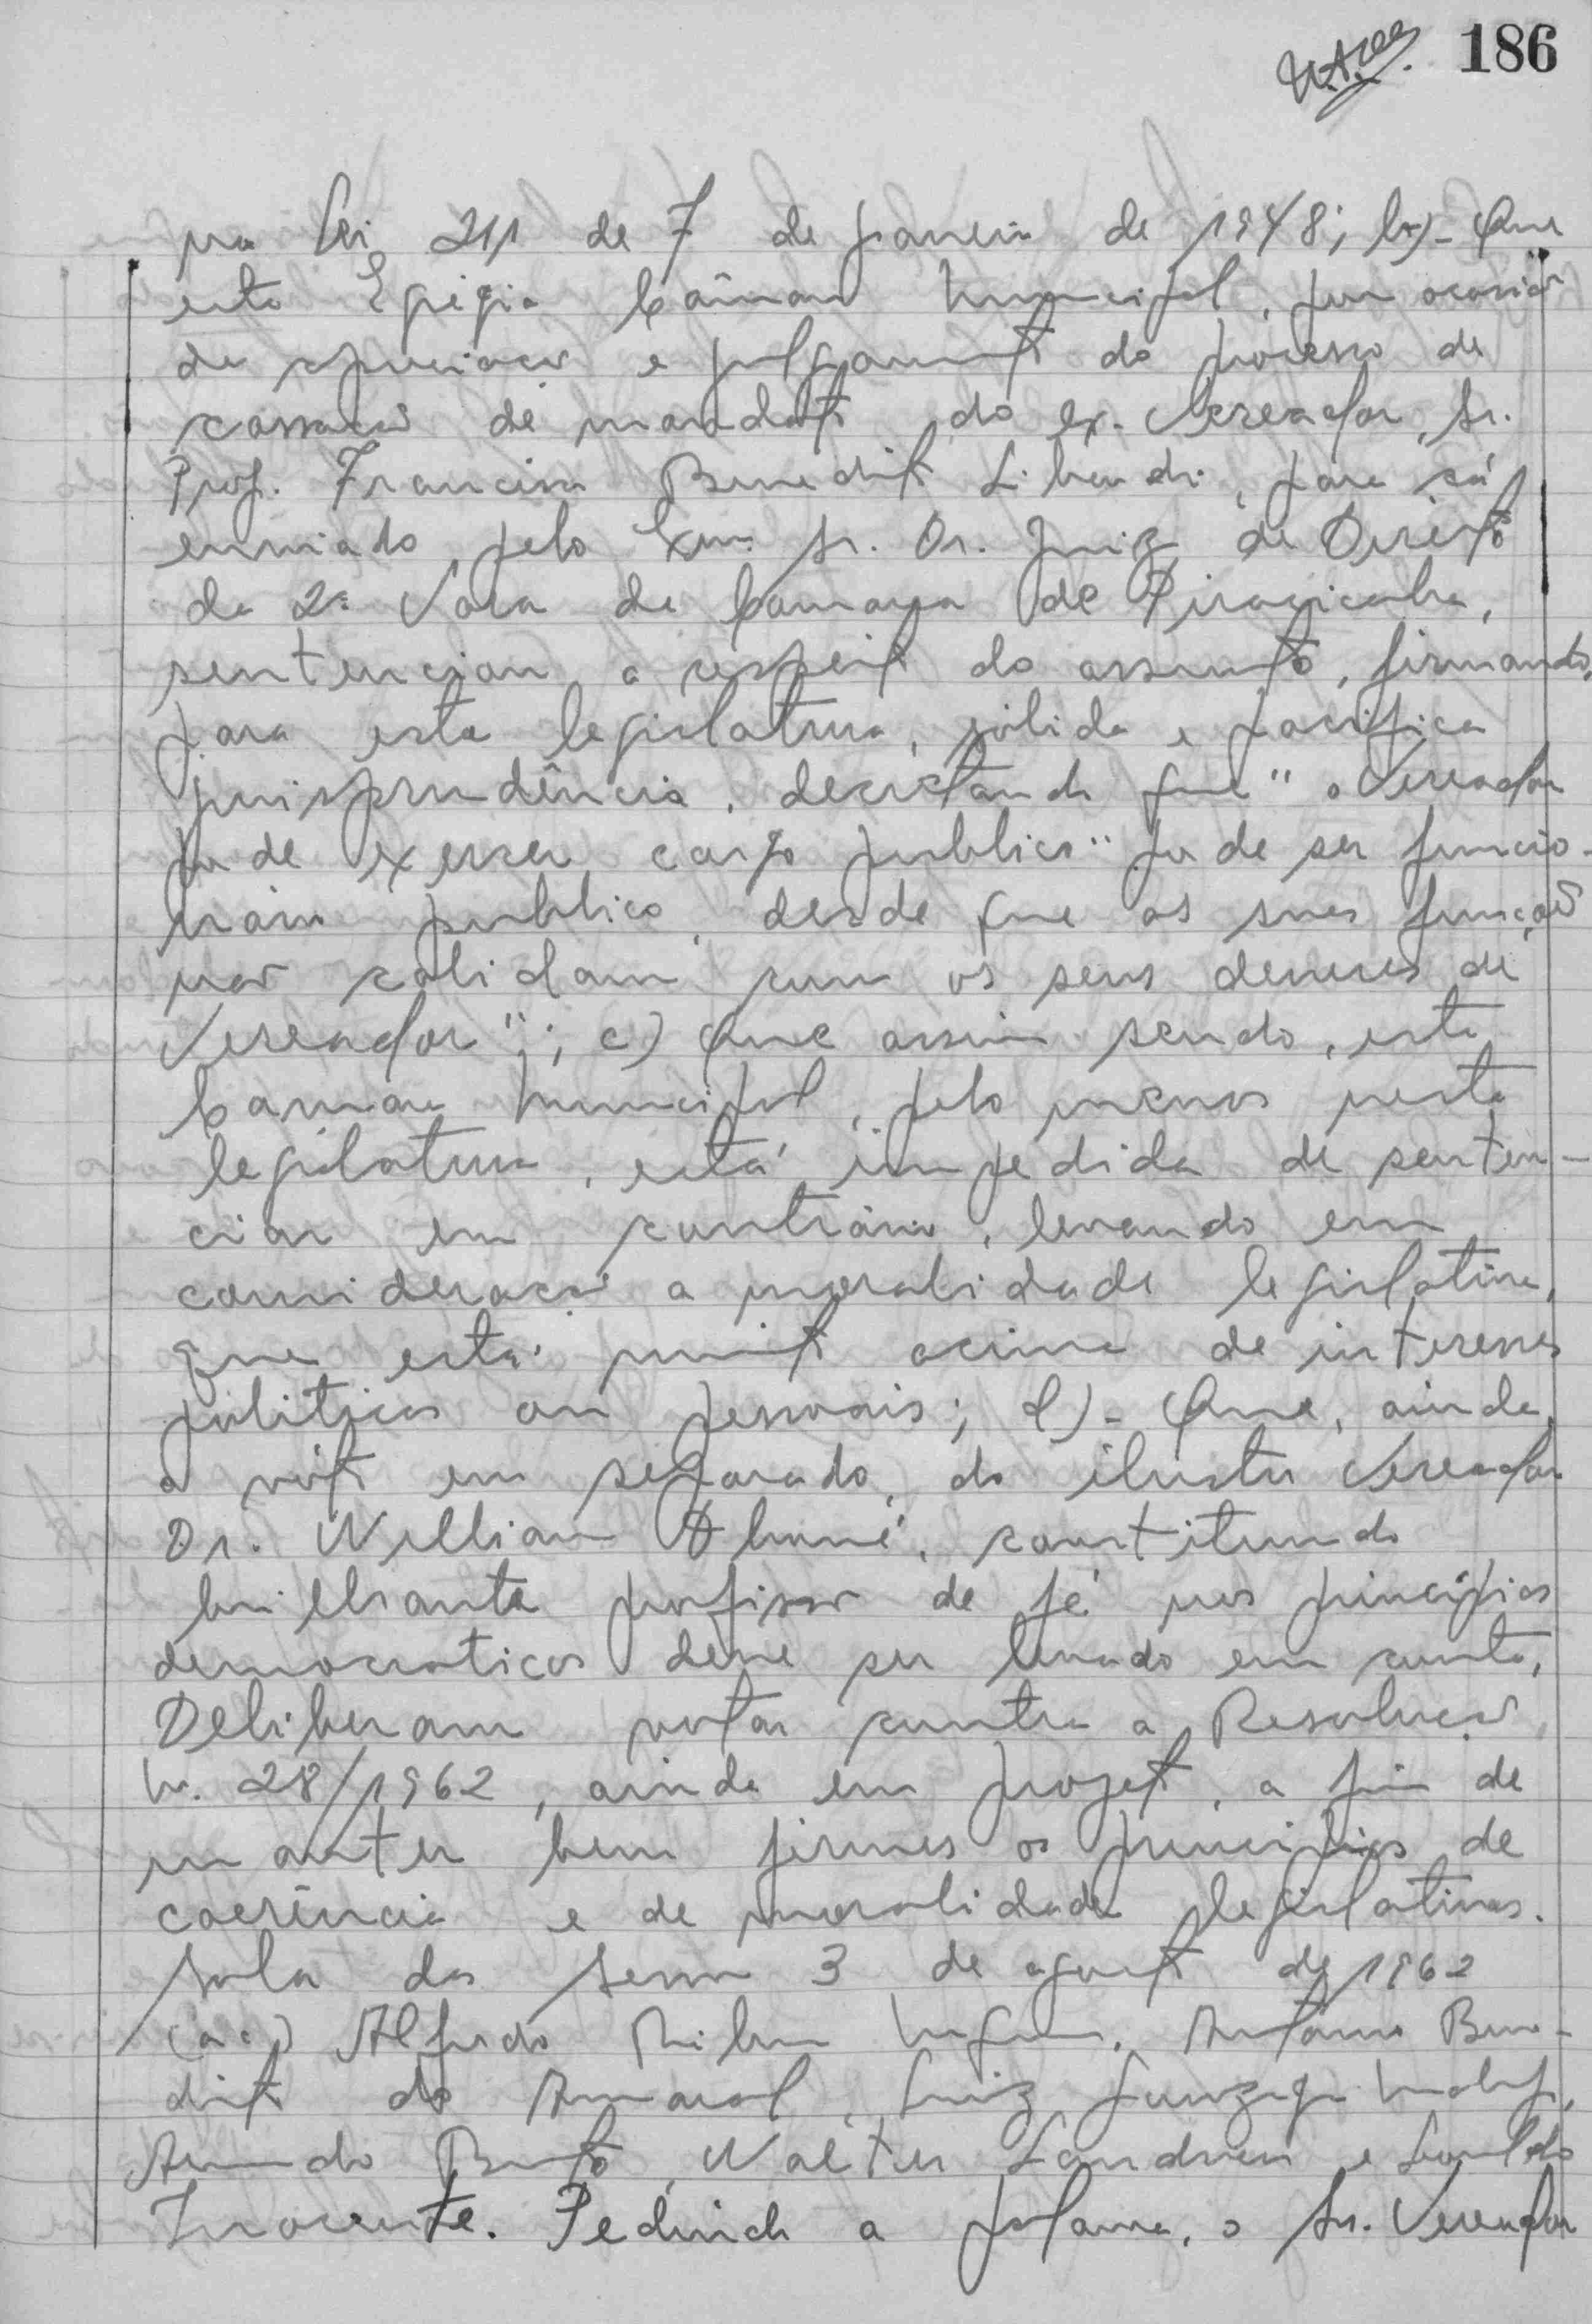 186
na Lei 211 de 7 de janeiro de 1948; b)- Que
esta Egrégia Câmara Municipal, por ocasião
da apreciação e julgamento do processo de
cassação de mandato do ex-Vereador, Sr.
Prof. Francisco Benedito Libardi, para cá
enviado pelo Exmo Sr. Dr. Juiz de Direito
da 2ª Vara da Comarca de Piracicaba,
sentenciou a respeito do assunto, firmando,
para esta legislatura, sólida e pacifica
jurisprudência, decretando que "o Vereador
pode exercer cargo publico" pode ser funcio-
nário publico, desde que as suas funções
não colidam com os seus deveres de
Vereador"; c) Que assim sendo, esta
Camara Municipal, pelo menos nesta
legislatura, está impedida de senten-
ciar em contrário, levando em
consideração a moralidade legislativa,
que está muito acima de interesses
politicos ou pessoais; d)- Que, ainda,
o voto em separado, do ilustre Vereador
Dr. Willian constituindo
brilhante profissão de fé nos principios
democraticos deve ser levado em conta,
Deliberam votar contra a Resolução
N. 28/1962, ainda em projeto, a fim de
manter bem firmes os principios de
coerência e de moralidade legislativas.
Sala das Sessões 3 de agosto de 1962
(a.a.) Alfredo Antonio Bene-
dito do Amaral, Luiz Gonzaga
Armando Walter e
Inocente. Pedindo a palavra, o Sr. Vereador